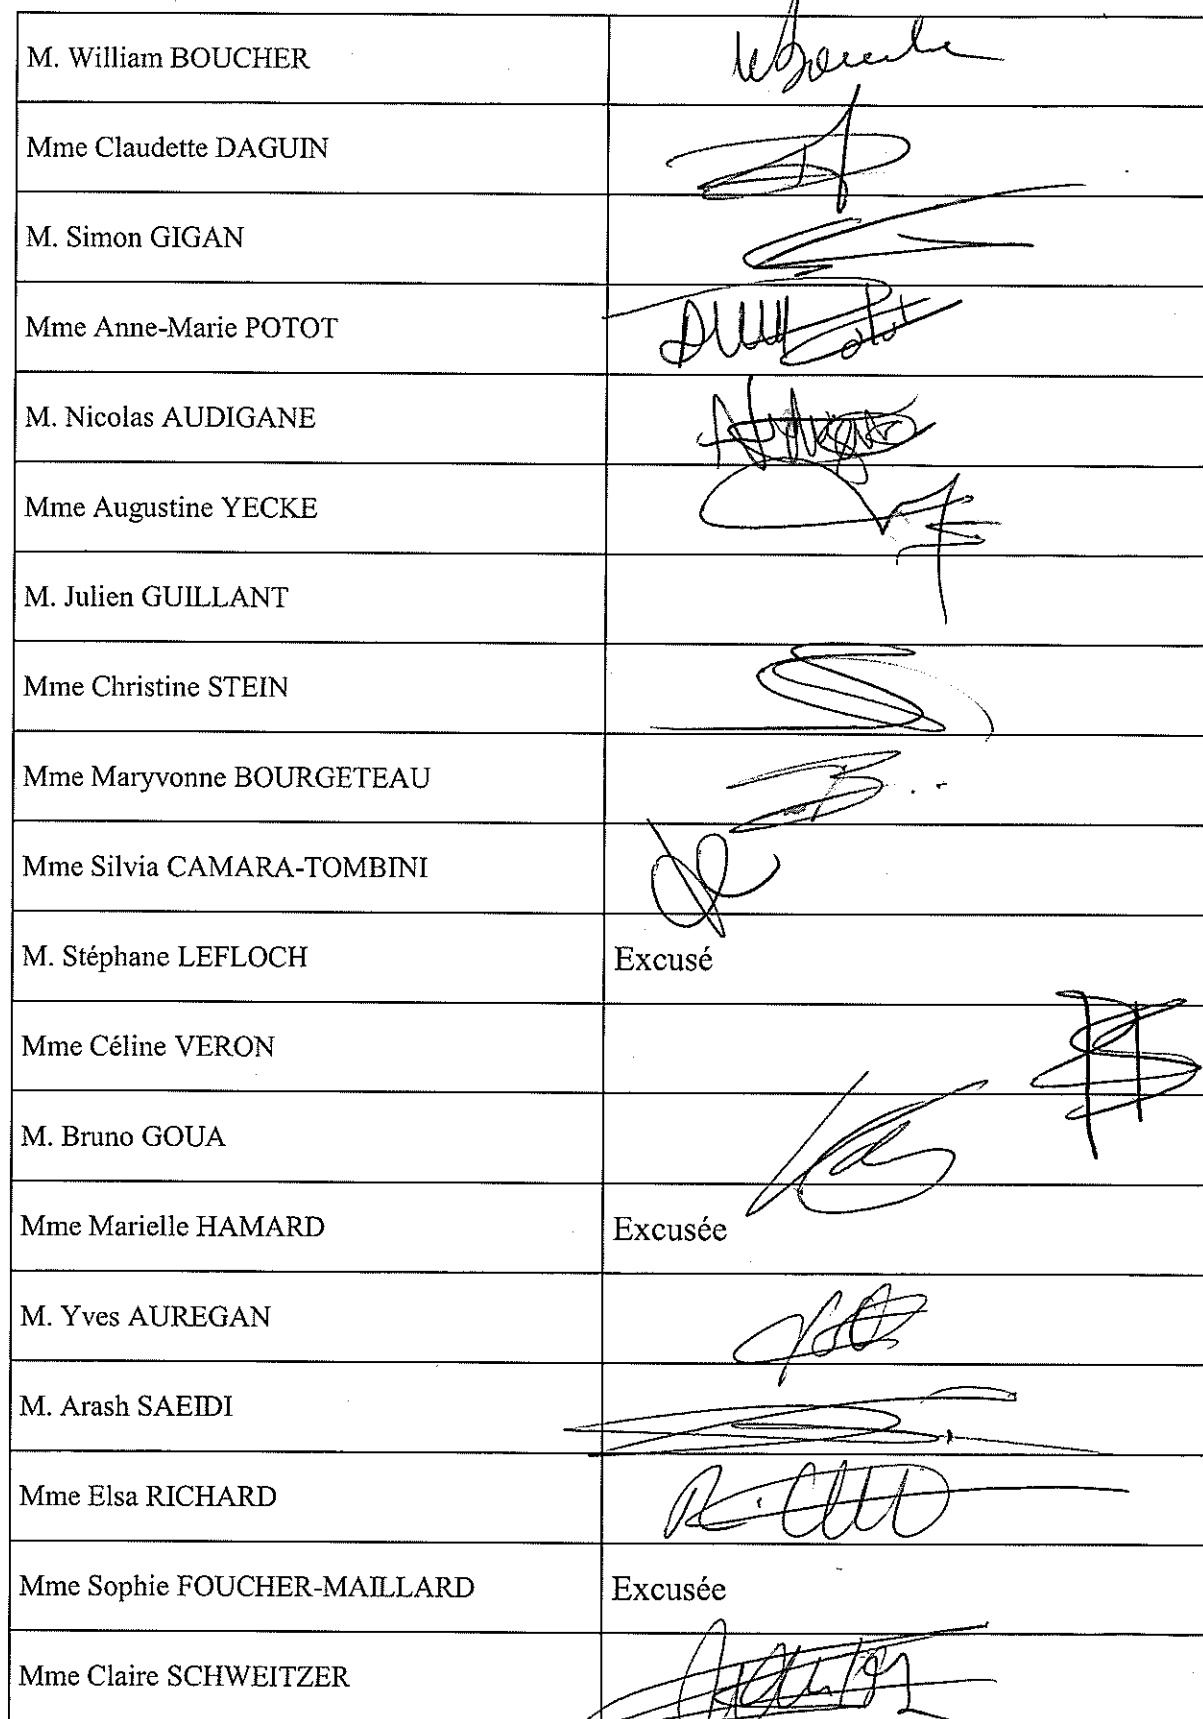 M. William BOUCHER
Mme Claudette DAGUIN
M. Simon GIGAN
Mme Anne-Marie POTOT
M. Nicolas AUDIGANE
Mme Augustine YECKE
M. Julien GUILLANT
Mme Christine STEIN
Mme Maryvonne BOURGETEAU
Mme Silvia CAMARA-TOMBINI
M. Stéphane LEFLOCH Excusé
Mme Céline VERON
M. Bruno GOUA
Mme Marielle HAMARD Excusée
M. Yves AUREGAN
M. Arash SAEIDI
Mme Elsa RICHARD
Mme Sophie FOUCHER-MAILLARD Excusée
Mme Claire SCHWEITZER